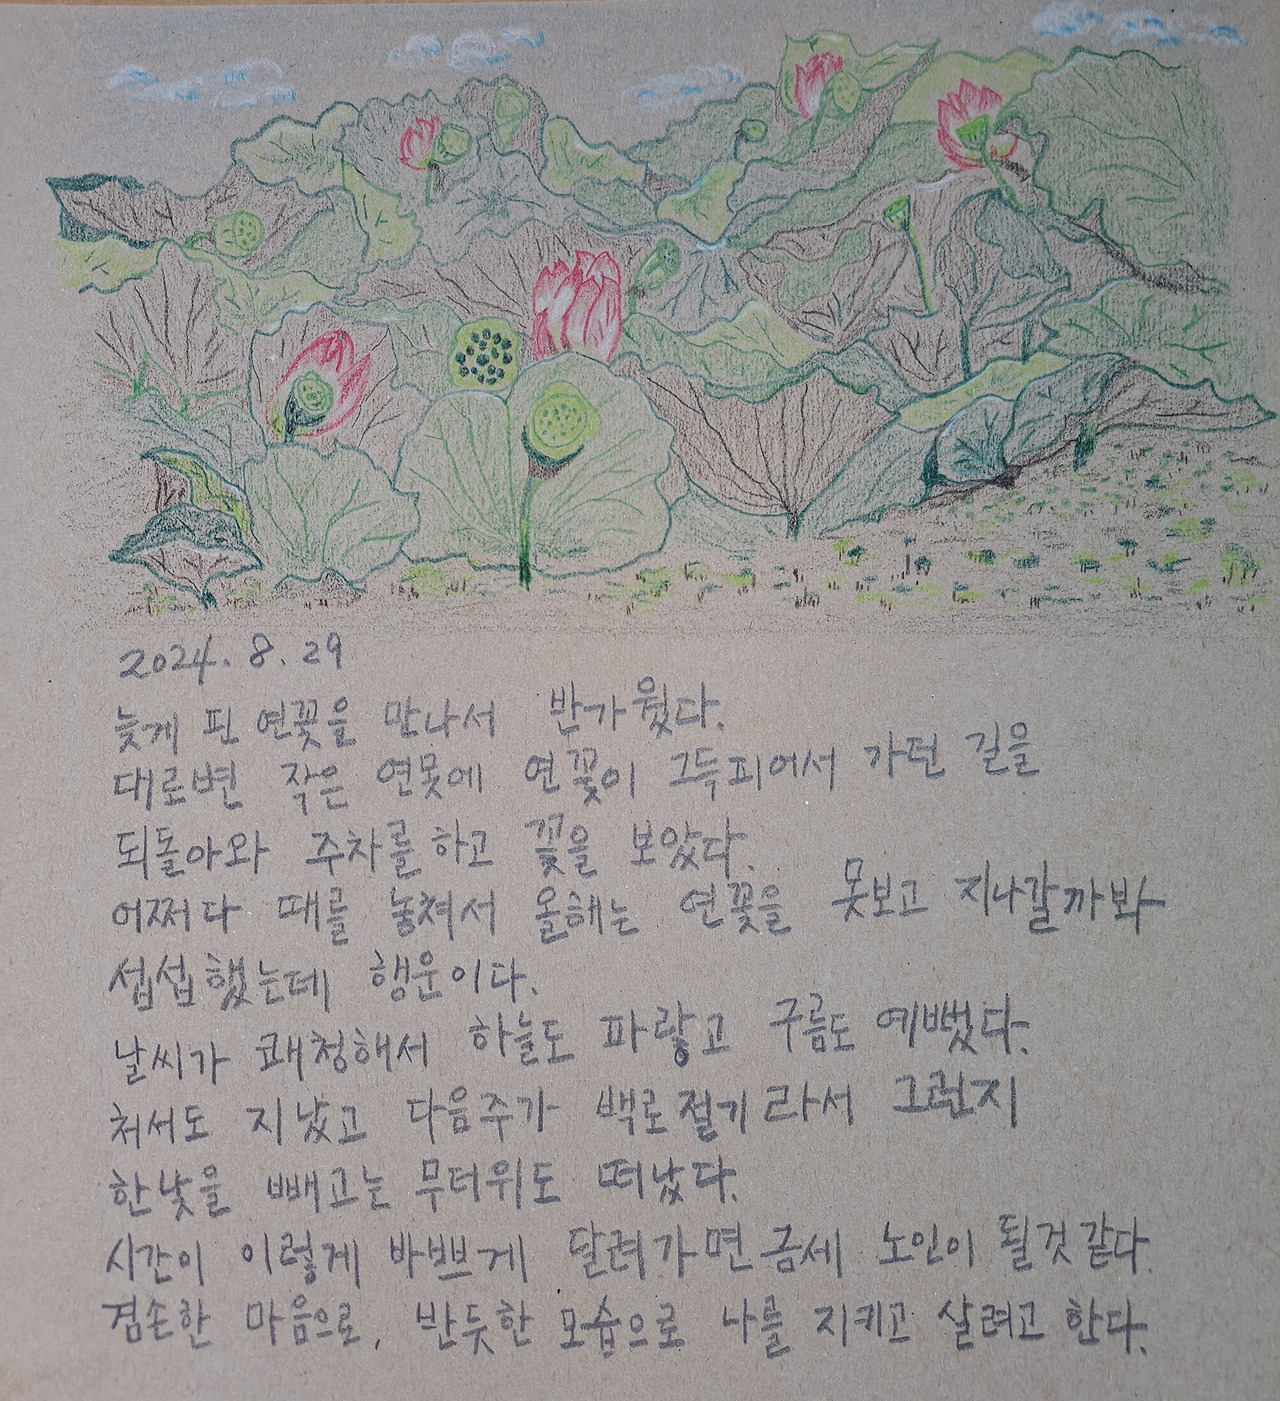 2024. 8. 29
늦게 핀 연꽃을 만나서 반가웠다.
대로변 작은 연못에 연꽃이 그득피어서 가던 길을
되돌아와 주차를 하고 꽃을 보았다.
어쩌다 때를 놓쳐서 올해는 연꽃을 못보고 지나갈까봐
섭섭했는데 행운이다.
날씨가 쾌청해서 하늘도 파랗고 구름도 예뻤다.
처서도 지났고 다음주가 백로절기라서 그런지
한낮을 빼고는 무더위도 떠났다.
시간이 이렇게 바쁘게 달려가면 금세 노인이 될것같다.
겸손한 마음으로, 반듯한 모습으로 나를 지키고 살려고 한다.